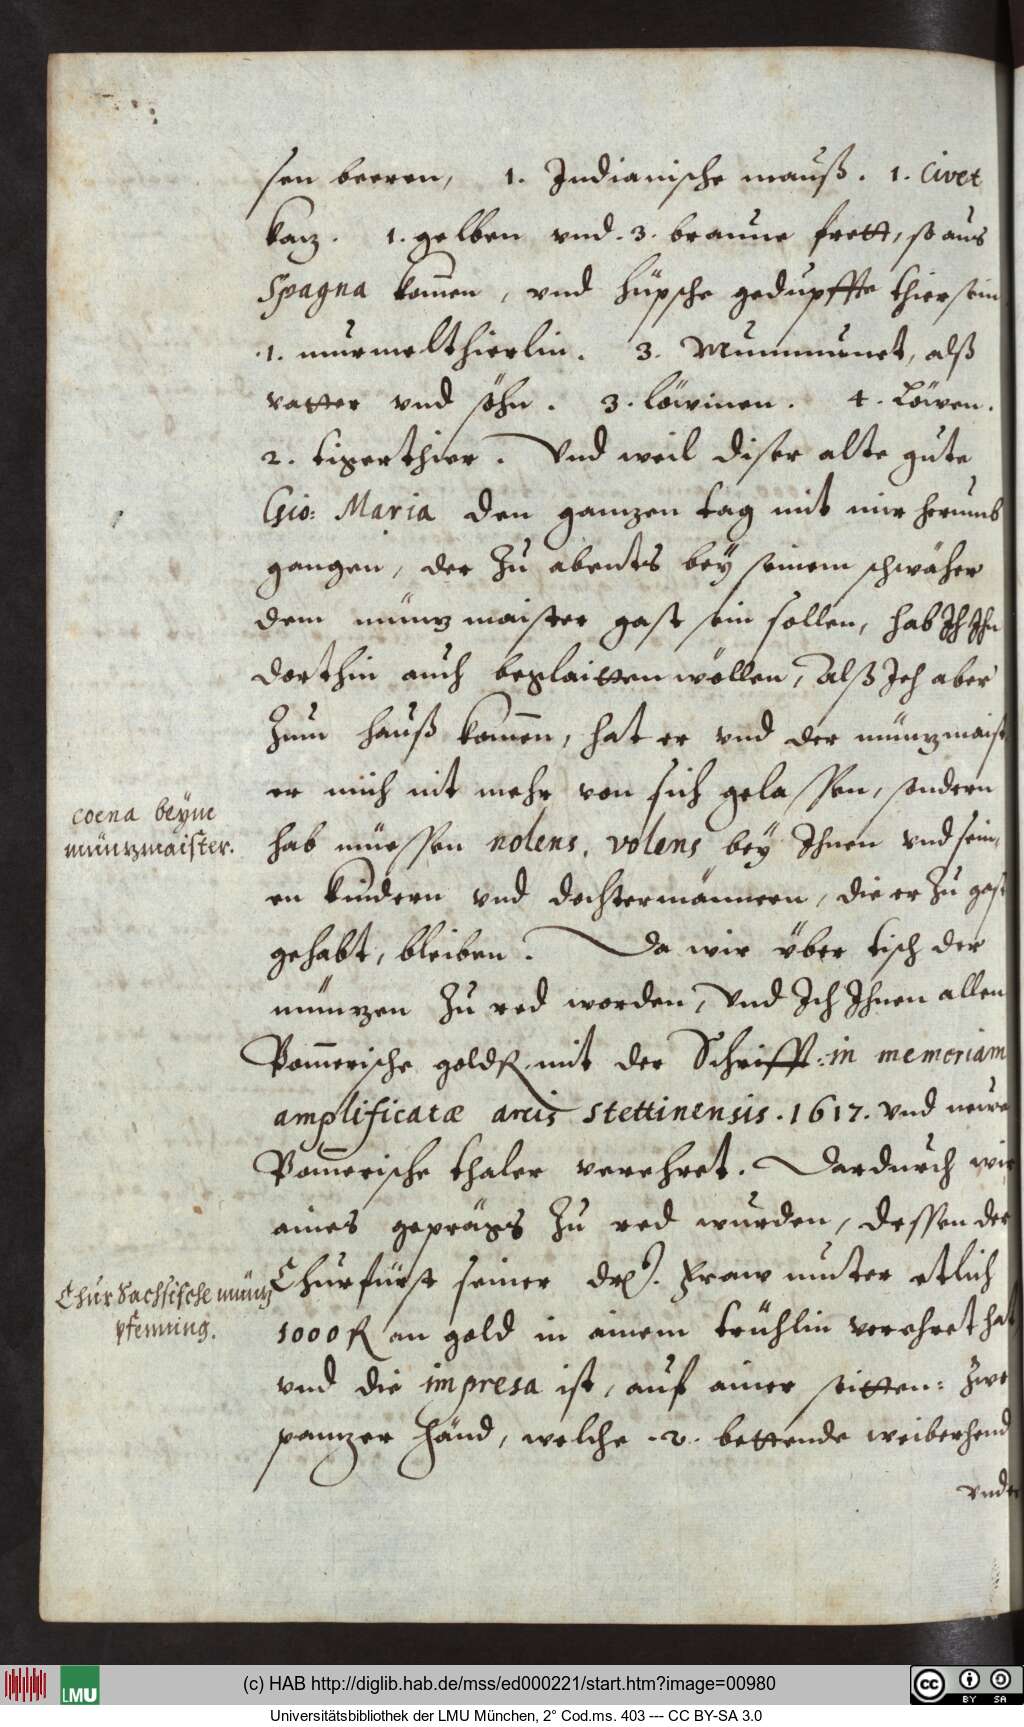 sen beeren, 1. Indianische mauß. 1. Civet
kaz. 1. gelben vnd. 3. braune frett, so aus
Spagna kom̄en, vnd hüpsche gedupffte thier sein
1. murmelthierlin. 3. Mummunet, alß
vatter vnd söhn. 3. löwinen. 4. Löwen.
2. tigerthier. Vnd weil diser alte gute
Gio: Maria den ganzen tag mit mir herumb
gangen, der Zu abents bey seinem schwäher
dem münz maister gast sein sollen, hab Ich Ihn
dorthin auch beglaitten wöllen, Alß Ich aber
Zum hauß kom̄en, hat er vnd der münzmaist
er mich nit mehr von sich gelassen, sondern
coena beÿm
münzmaister.
hab müessen nolens, volens beÿ Ihnen vnd sein,
en kindern vnd dochtermännern, die er Zu gast
gehabt, bleiben. Da wir über tisch der
münzen Zu red worden, Vnd Ich Ihnen allen
Pom̄erische goldfl. mit der Schrifft: in memoriam
amplificatæ arcis Stettinensis. 1617. vnd newe
Pom̄erische thaler verehret. Dardurch wir
aines geprägs Zu red wurden, dessen der
Chur Sachsische münz
pfenning.
Churfürst seiner drl. Fraw mutter etlich
1000 fl an gold in ainem trühlin verehret hat
vnd die impresa ist, auf ainer seitten: Zwe
panzer händ, welche .2. bettende weiberhend
vnder
(c) HAB http://diglib.hab.de/mss/ed000221/start.htm?image=00980
LMU
CC BY SA
Universitätsbibliothek der LMU München, 2° Cod.ms. 403 --- CC BY-SA 3.0